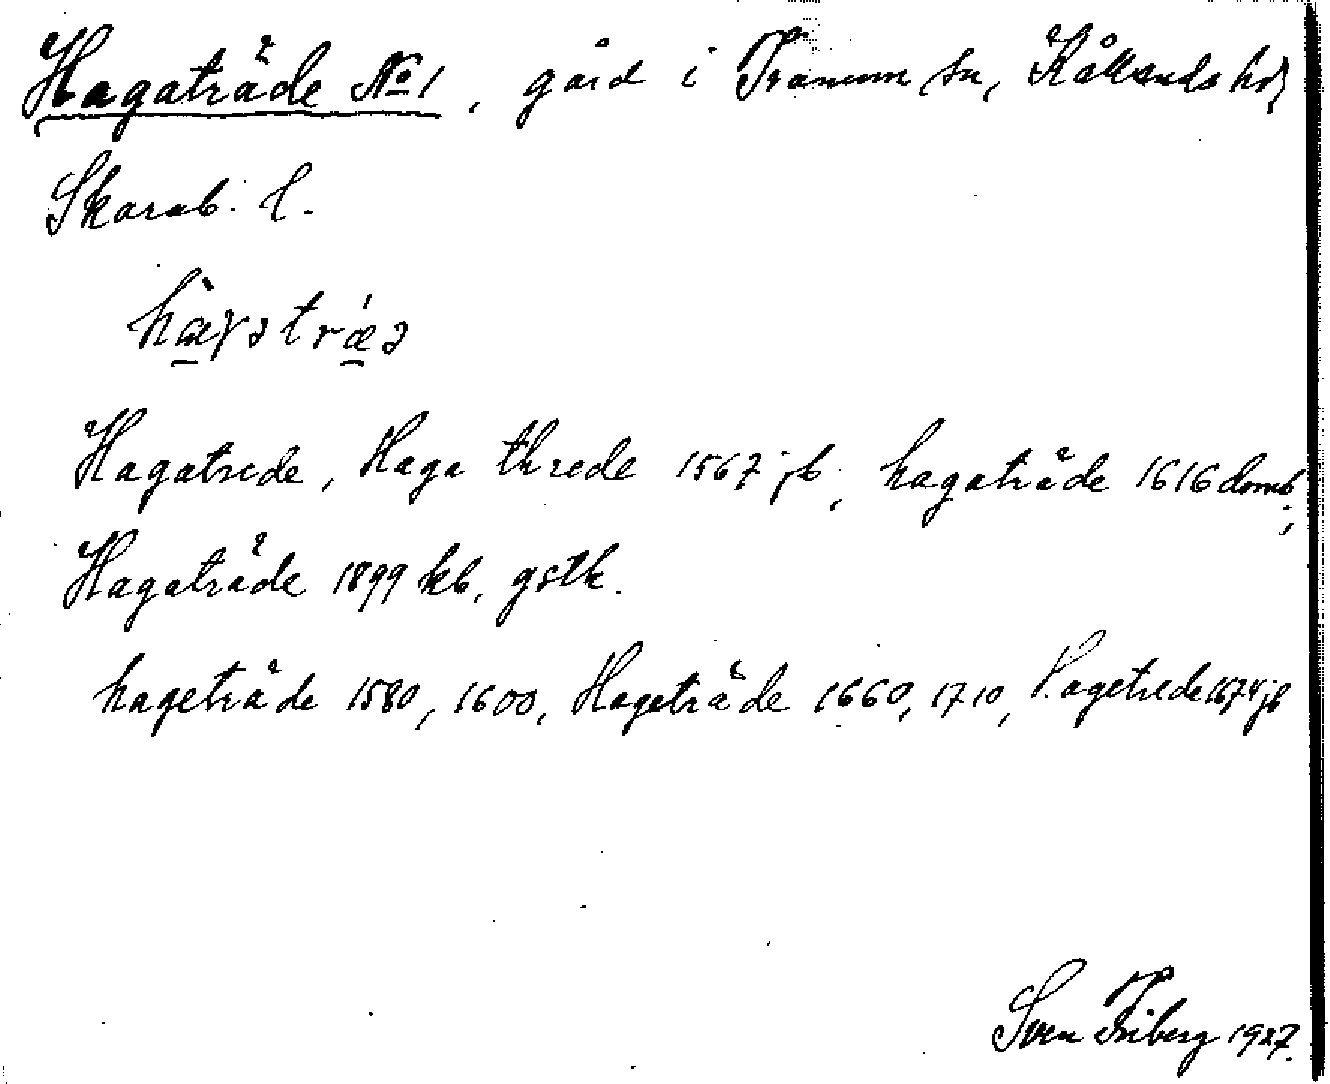 Hagaträde No 1, gård i Tranum sn, Kållands hd,
Skarab. l.
hæ̀ɣətrǽə
Hagatrede, Haga threde 1567 jb, hagaträde 1616 domb;
Hagaträde 1899 kb, gstk.
hageträde 1580, 1600, Hageträde 1660, 1710, Hagetrede 1674 jb
Sven Friberg 1927.